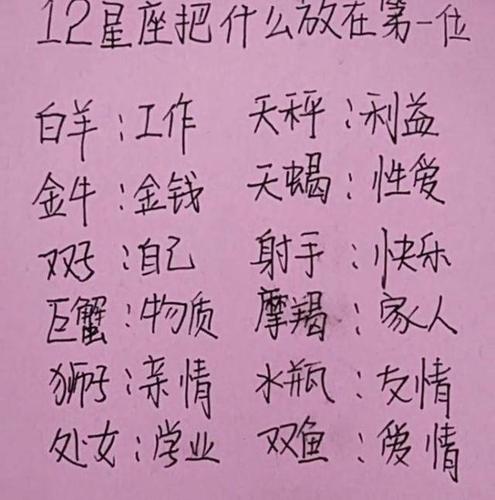 12星座把什么放在第一位
白羊：工作 天秤：利益
金牛：金钱 天蝎：性爱
双子：自己 射手：快乐
巨蟹：物质 摩羯：家人
狮子：亲情 水瓶：友情
处女：学业 双鱼：爱情